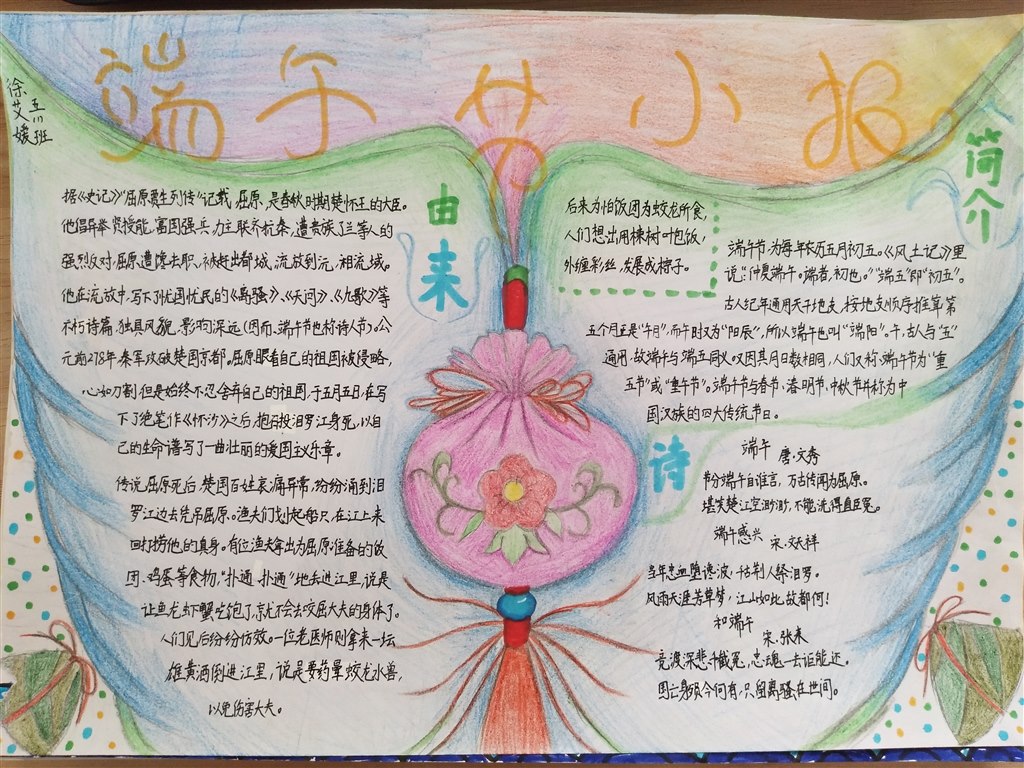 端午节小报
徐艾媛
五(1)班
由来
据《史记》"屈原贾生列传"记载,屈原,是春秋时期楚怀王的大臣。
他倡导举贤授能,富国强兵,力主联齐抗秦,遭贵族子兰等人的
强烈反对,屈原遭馋去职,被赶出都城,流放到沅、湘流域。
他在流放中,写下了忧国忧民的《离骚》、《天问》、《九歌》等
不朽诗篇,独具风貌,影响深远(因而、端午节也称诗人节)。公
元前278年,秦军攻破楚国京都。屈原眼看自己的祖国被侵略,
心如刀割,但是始终不忍舍弃自己的祖国,于五月五日,在写
下了绝笔作《怀沙》之后,抱石投汨罗江身死,以自
己的生命谱写了一曲壮丽的爱国主义乐章。
传说屈原死后,楚国百姓哀痛异常,纷纷涌到汨
罗江边去凭吊屈原。渔夫们划起船只,在江上来
回打捞他的真身。有位渔夫拿出为屈原准备的饭
团、鸡蛋等食物,"扑通、扑通"地丢进江里,说是
让鱼龙虾蟹吃饱了,就不会去咬屈大夫的身体了。
人们见后纷纷仿效。一位老医师则拿来一坛
雄黄酒倒进江里,说是要药晕蛟龙水兽,
以免伤害大夫。
后来为怕饭团为蛟龙所食,
人们想出用楝树叶包饭,
外缠彩丝,发展成棕子。
简介
端午节为每年农历五月初五。《风土记》里
说:"仲夏端午。端者,初也。""端五"即"初五"。
古人纪年通用天干地支,按地支顺序推算,第
五个月正是"午月",而午时又为"阳辰",所以端午也叫"端阳"。午,古人与"五"
通用,故端午与端五同义。又因其月日数相同,人们又称端午节为"重
五节"或"重午节"。端午节与春节、清明节、中秋节并称为中
国汉族的四大传统节日。
诗
端午 唐·文秀
节分端午自谁言,万古传闻为屈原。
堪笑楚江空渺渺,不能洗得直臣冤。
端午感兴
宋·文天祥
当年忠血堕谗波,千古荆人祭汨罗。
风雨天涯芳草梦,江山如此故都何!
和端午
宋·张耒
竞渡深悲千载冤,忠魂一去讵能还。
国亡身殒今何有,只留离骚在世间。